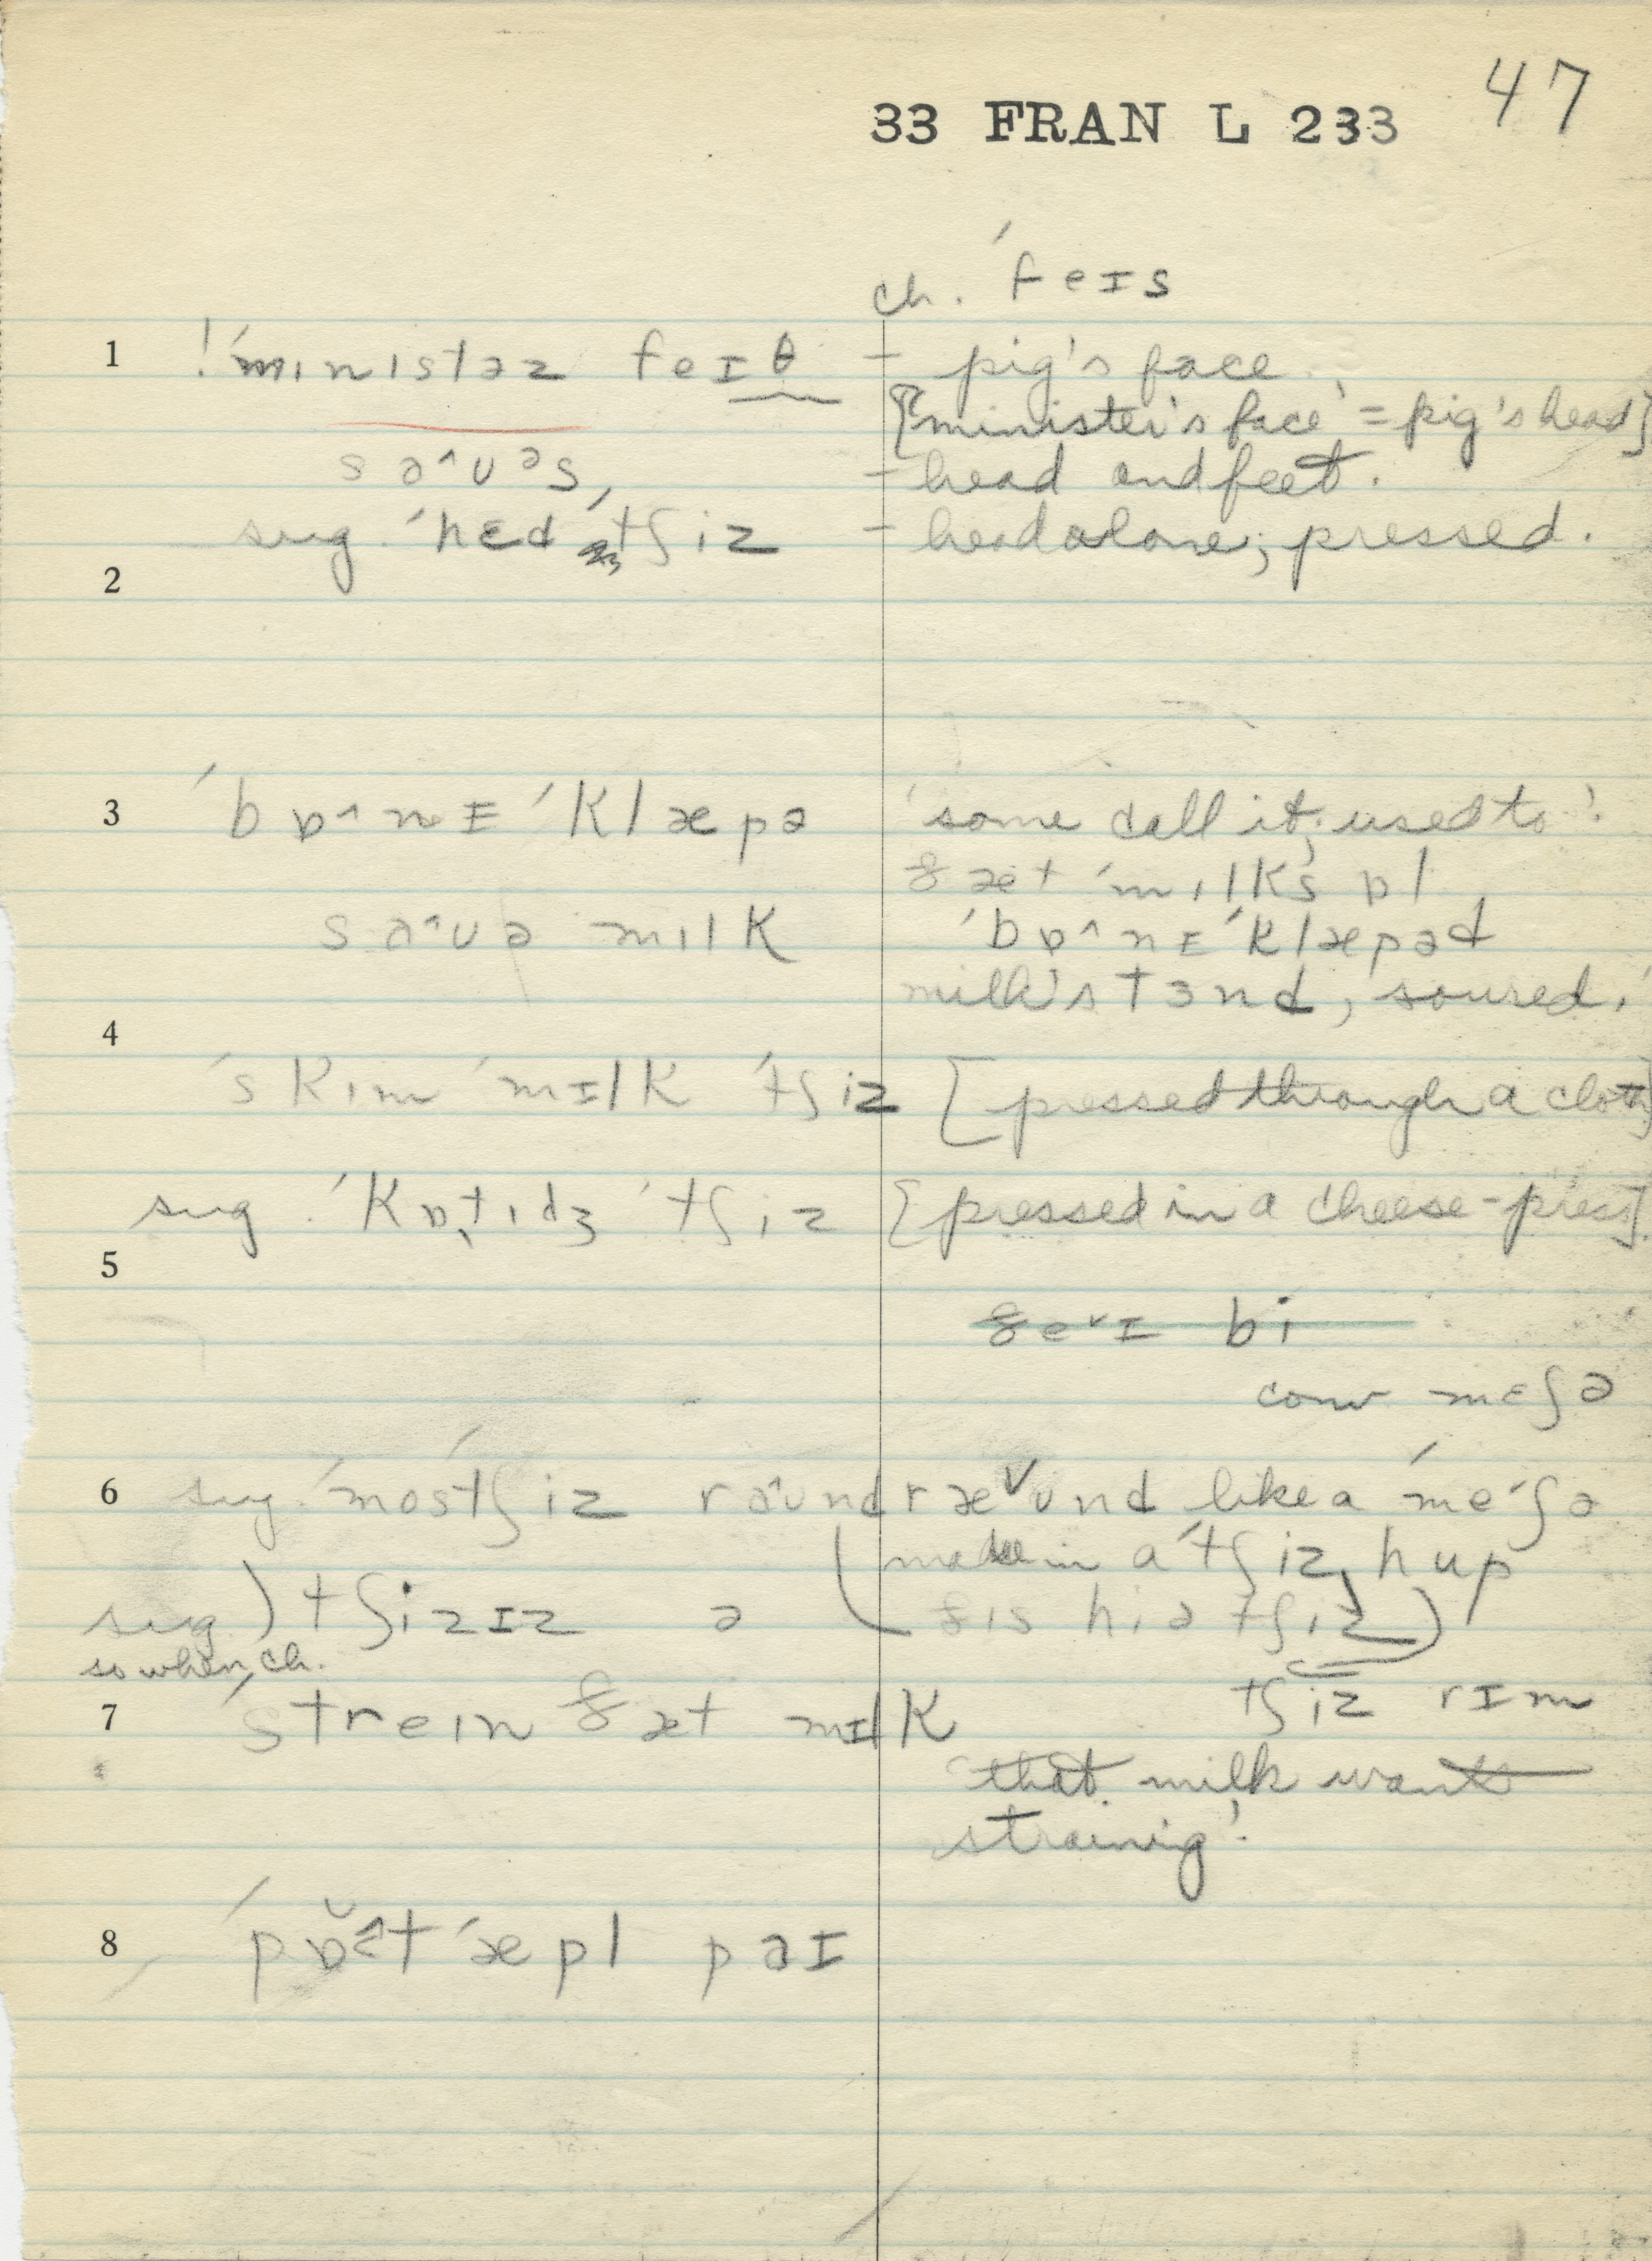 47
33 FRAN L 233
ch. ˈfeɪs
1 !ˈministəz feɪθ - pig's face.
['minister's face' = pig's head]
səˆuəs, - head and feet.
sug. ˈhɛd ˈtʃiz - head alone; pressed.
2
3 ˈbɒˆnɪ ˈklæpə 'some call it, used to'.
ðæt ˈmɪlks ɒl
səˆuə mɪlk ˈbɒˆnɪ ˈklæpəd
milk's tɜnd, soured.'
4
ˈskim ˈmɪlk ˈtʃiz [pressed through a cloth]
sug. ˈkɒtidʒ ˈtʃiz [pressed in a cheese-press].
5
ðeˇɪ bi
conv mɛʃə
6 sug. ˈmostʃiz rəˆund ræˇund like a ˈmeʃə
(made in a ˈtʃiz hup
sug.) tʃizɪz ə ðis hiə tʃiz)
so when, ch.
7 ˈstrein ðæt mɪlk tʃiz rɪm
'that milk wants
straining'.
8 ˈpɒˆt ˈæpl pəɪ